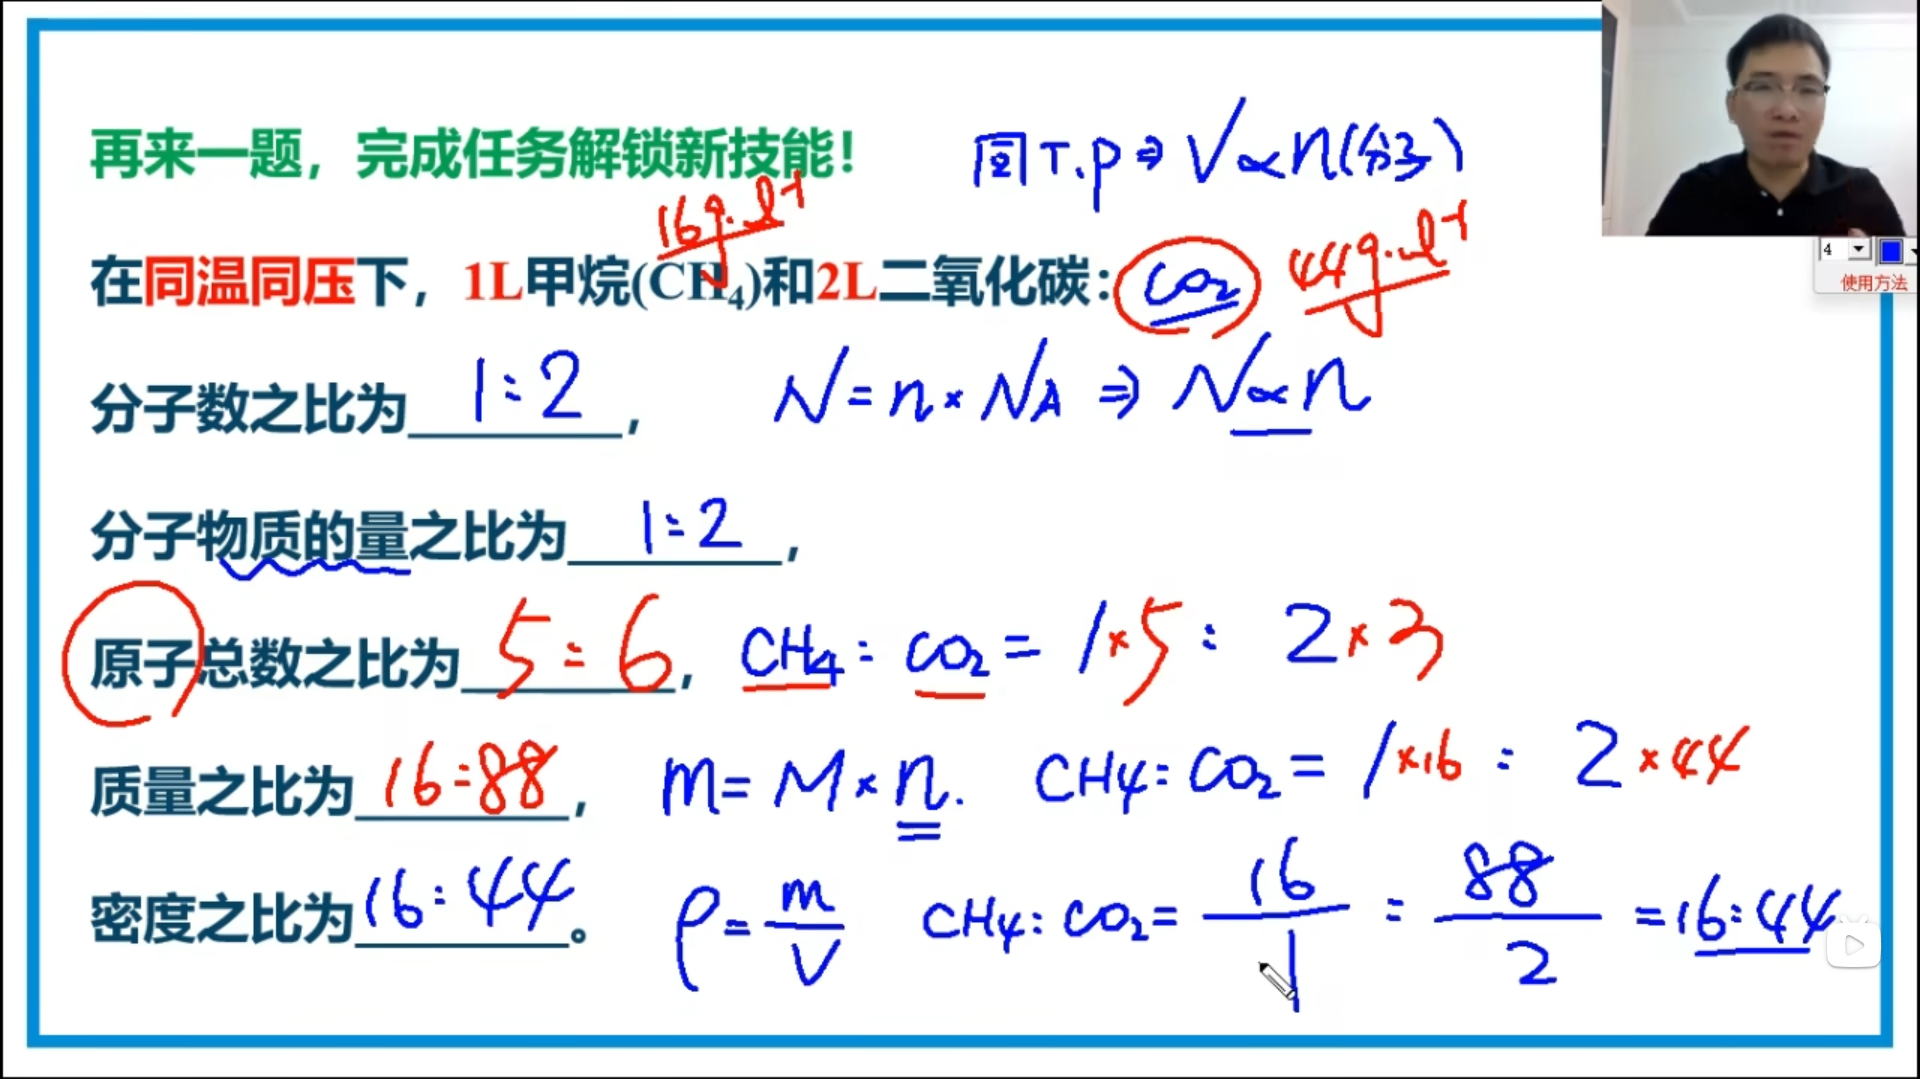 再来一题，完成任务解锁新技能！ 同T.P⇒V∝n(分子)
16g·mol⁻¹
在同温同压下，1L甲烷(CH₄)和2L二氧化碳：CO₂ 44g·mol⁻¹
4
使用方法
分子数之比为1:2， N=n×NA⇒N∝n
分子物质的量之比为1:2，
原子总数之比为5:6， CH₄:CO₂=1×5:2×3
质量之比为16:88， m=M×n. CH₄:CO₂=1×16:2×44
密度之比为16:44。 ρ=m/V CH₄:CO₂=16/1:88/2=16:44